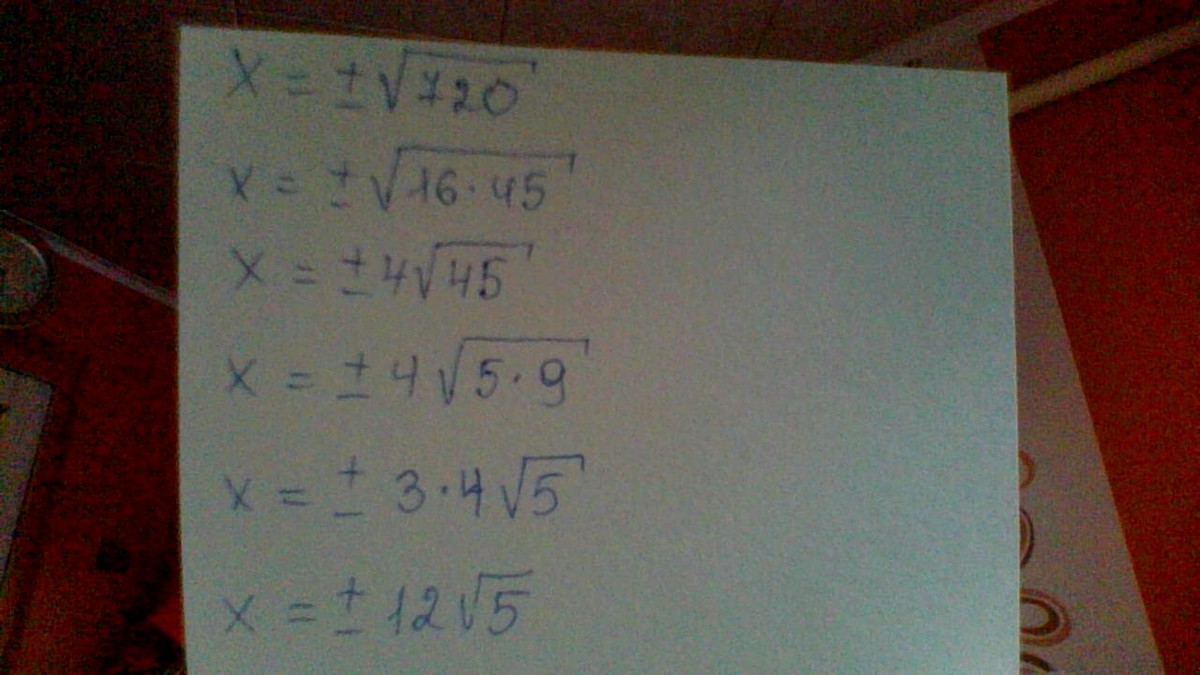 x = ±√720
x = ±√16·45
x = ±4√45
x = ±4√5·9
x = ± 3·4√5
x = ± 12√5